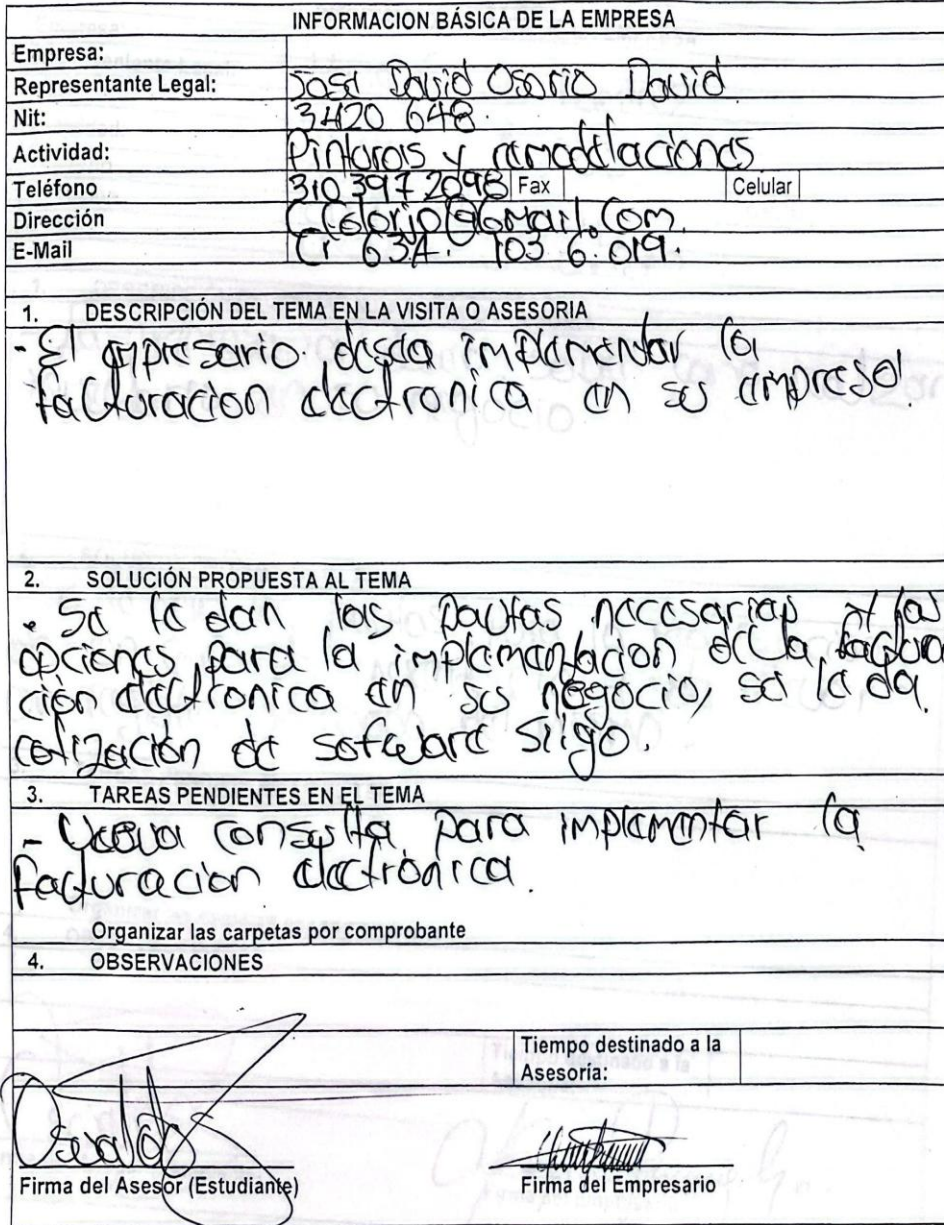 INFORMACION BÁSICA DE LA EMPRESA
Empresa:
Representante Legal: José David Osorio David
Nit: 3420 648.
Actividad: Pinturas y remodelaciones
Teléfono 310 397 2098 Fax Celular
Dirección @Gmail.Com
E-Mail Cr 63A. 103 6. 019.
1. DESCRIPCIÓN DEL TEMA EN LA VISITA O ASESORIA
- El empresario desea implementar la
facturacion electronica en su empresa.
2. SOLUCIÓN PROPUESTA AL TEMA
. Se le dan las pautas necesarias y las
opciones para la implementacion de la factura
ción electronica en su negocio, se le da
cotización de software siigo.
3. TAREAS PENDIENTES EN EL TEMA
- Nueva consulta para implementar la
facturacion electrónica.
Organizar las carpetas por comprobante
4. OBSERVACIONES
Tiempo destinado a la
Asesoría:
Osvaldo
Firma del Asesor (Estudiante) Firma del Empresario